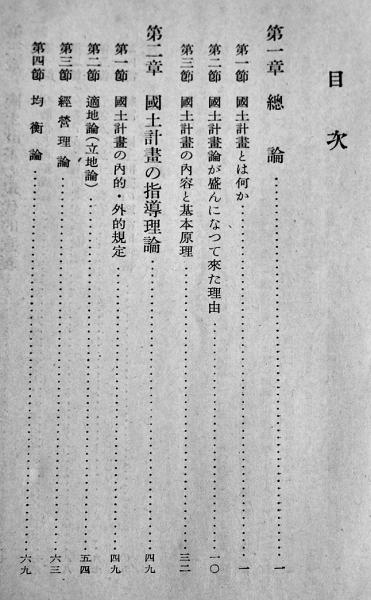 目次
第一章 總論……一
第一節 國土計畫とは何か……一
第二節 國土計畫論が盛んになつて來た理由……一〇
第三節 國土計畫の內容と基本原理……三二
第二章 國土計畫の指導理論……四九
第一節 國土計畫の內的・外的規定……四九
第二節 適地論(立地論)……五四
第三節 經營理論……六三
第四節 均衡論……六九